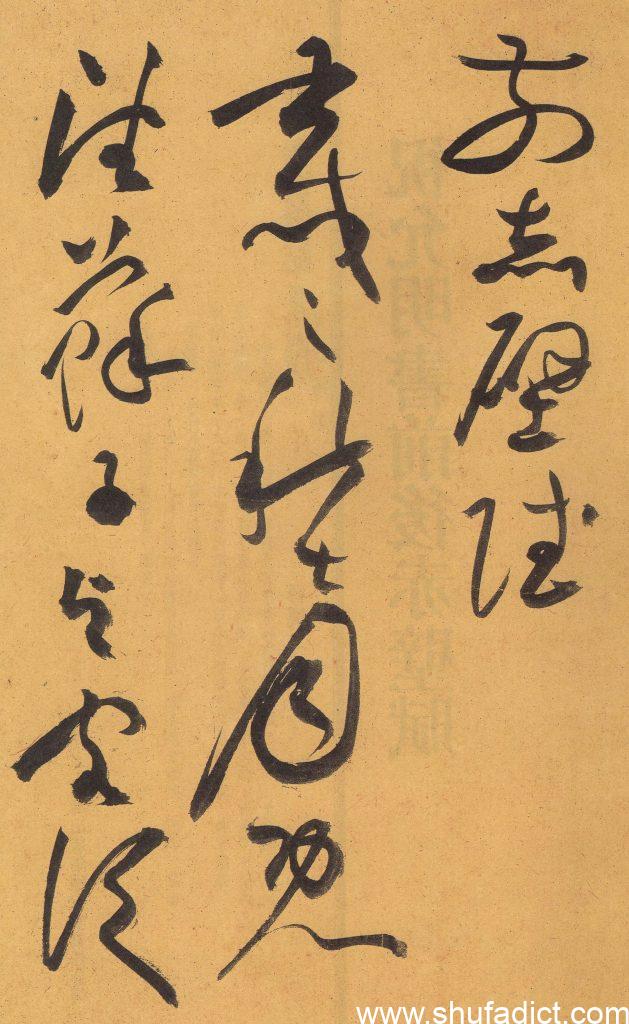 前赤壁賦
壬戌之秋七月既
望蘇子与客泛
www.shufadict.com